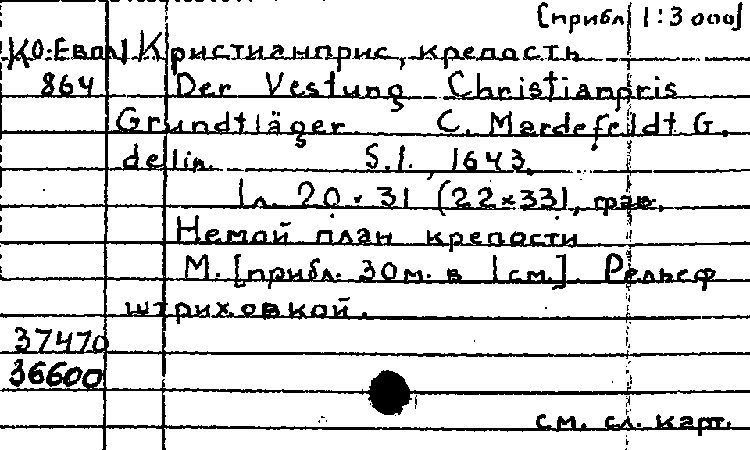 [прибл 1:3 000]
КО: Евпл Кристианприс, крепость
864 Der Vestung Christianpris
Grundtläger C. Mardefeldt G.
delin. S.l., 1643.
1 л. 20 × 31 (22×33), грав.
Немой план крепости
М. [прибл. 30м. в 1см.] Рельеф
штриховкой.
37470
36600
см. сл. карт.